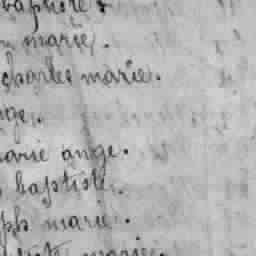 baptiste
marie.
charles marie.
ange.
marie ange.
baptiste.
ph marie.
marie.